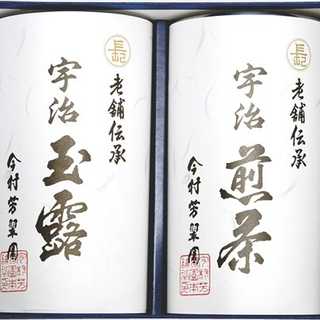 長記
老舗伝承
宇治
玉露
今村芳翠園
長記
老舗伝承
宇治
煎茶
今村芳翠園